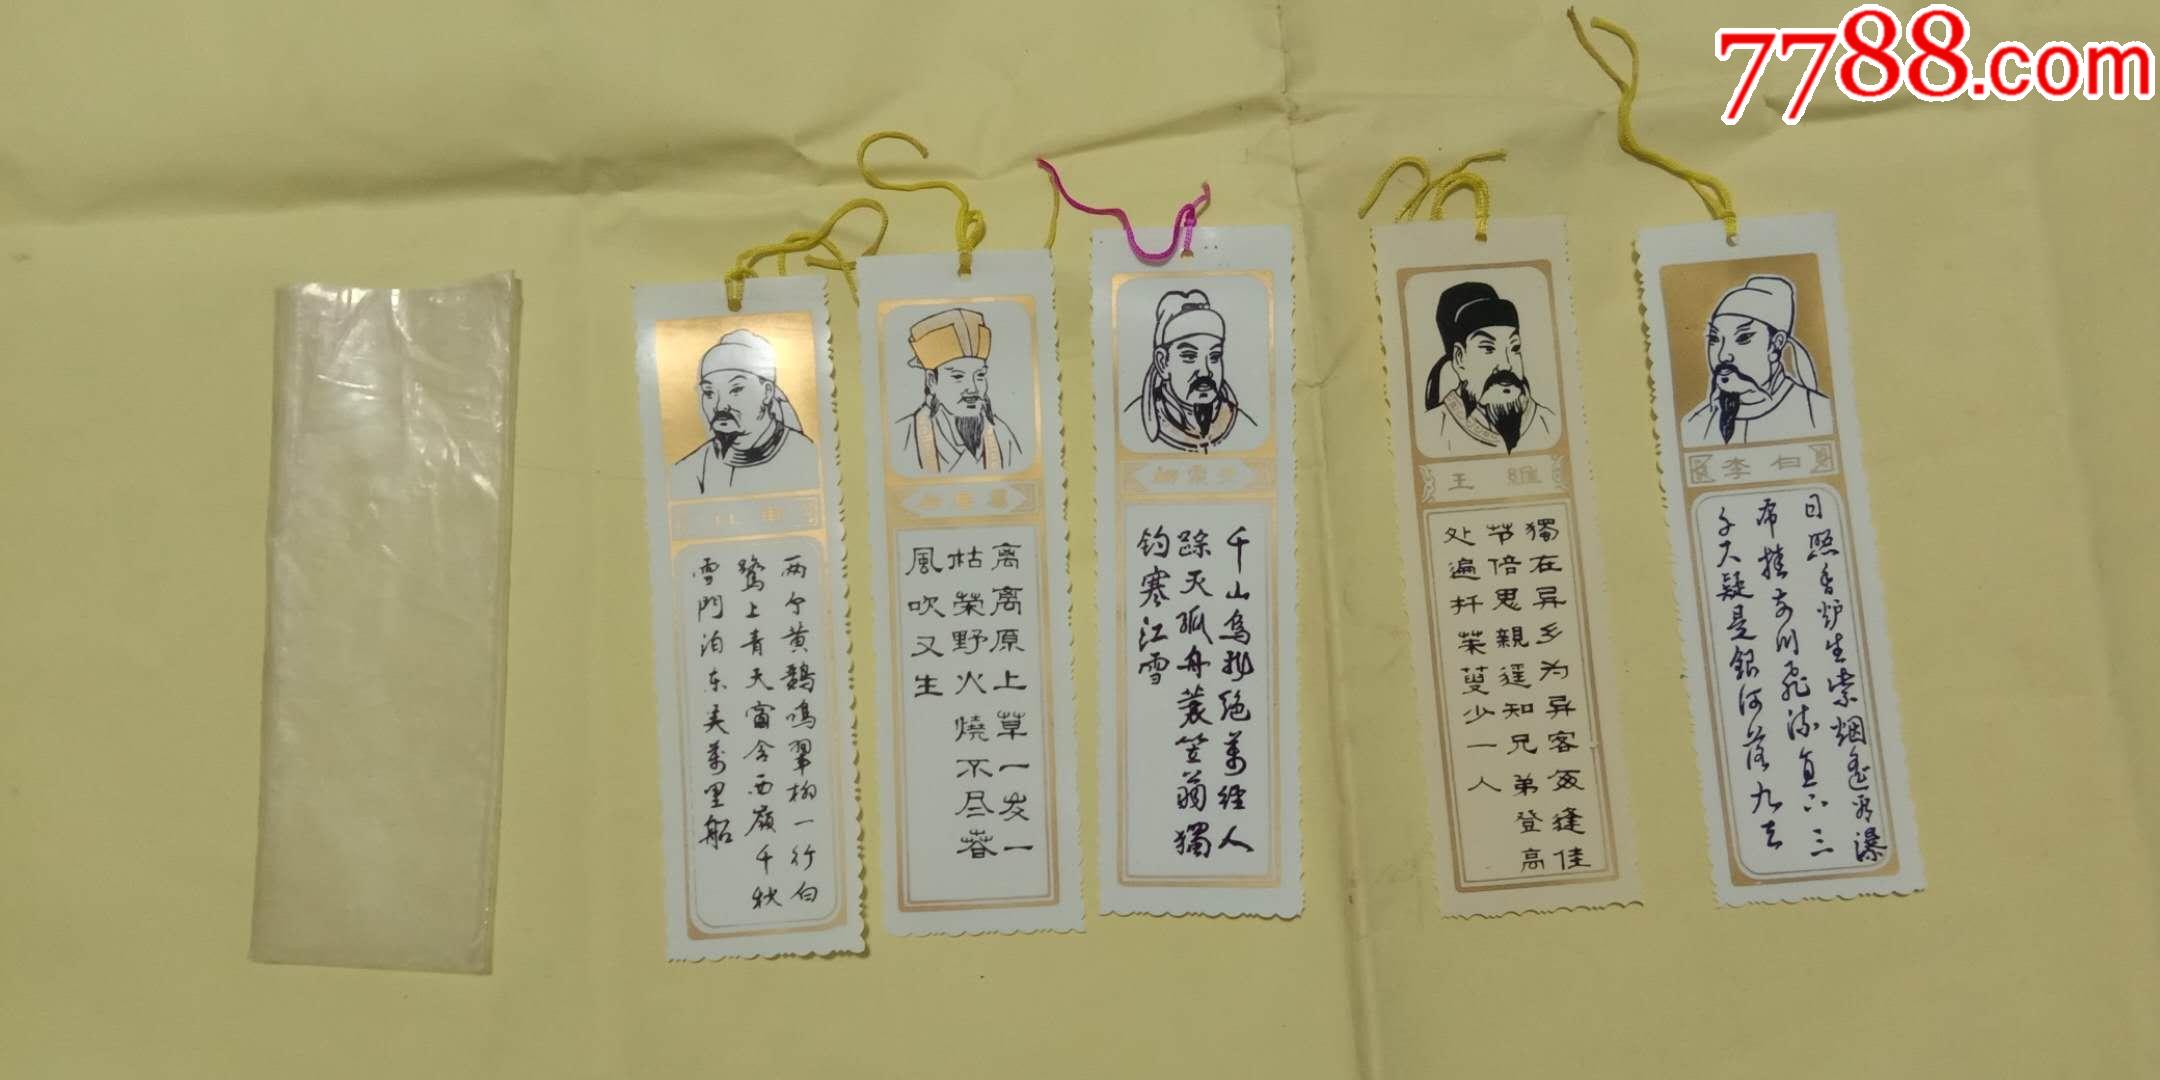 7788.com
两个黄鹂鳴翠柳一行白
鹭上青天窗含西嶺千秋
雪門泊东吴萬里船
离离原上草一岁一
枯荣野火燒不尽春
風吹又生
柳宗元
千山鸟飛绝萬径人
踪灭孤舟蓑笠翁獨
钓寒江雪
王維
獨在异乡为异客每逢佳
节倍思親遥知兄弟登高
处遍插茱萸少一人
李白
日照香炉生紫烟遥看瀑
布挂前川飛流直下三
千尺疑是銀河落九天